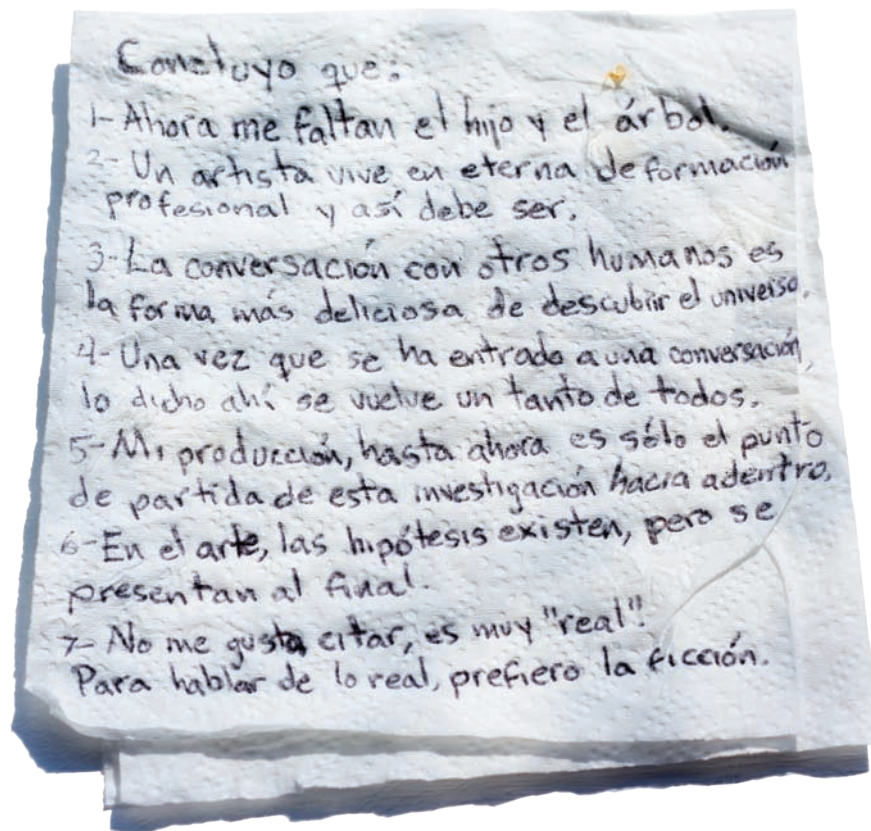 Concluyo que:
1- Ahora me faltan el hijo y el árbol.
2- Un artista vive en eterna deformación
profesional y así debe ser.
3- La conversación con otros humanos es
la forma más deliciosa de descubrir el universo.
4- Una vez que se ha entrado a una conversación,
lo dicho ahí se vuelve un tanto de todos.
5- Mi producción, hasta ahora es sólo el punto
de partida de esta investigación hacia adentro.
6- En el arte, las hipótesis existen, pero se
presentan al final.
7- No me gusta citar, es muy "real".
Para hablar de lo real, prefiero la ficción.